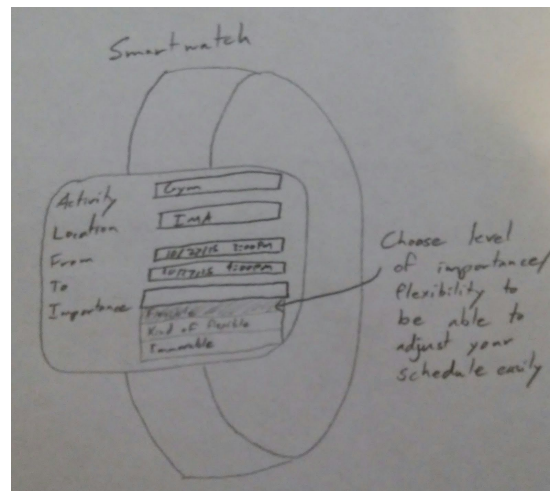 Smartwatch
Activity Gym
Location IMA
From 10/27/15 2:00PM
To 10/27/15 4:00PM
Importance
Flexible
Kind of flexible
Immovable
Choose level
of importance/
flexibility to
be able to
adjust your
schedule easily